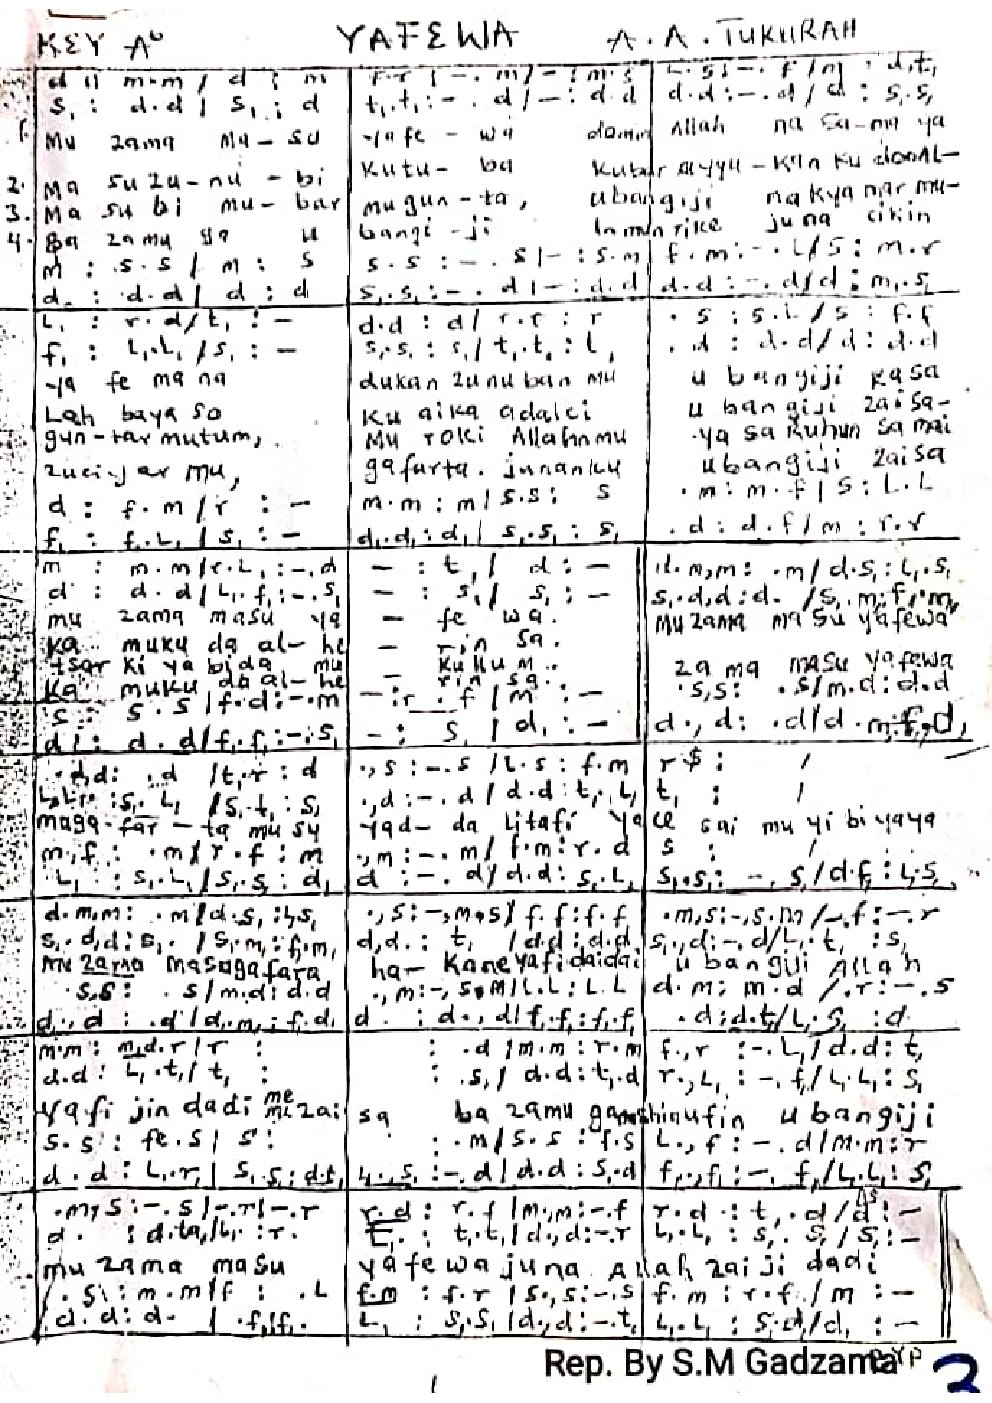 KEY Ab YAFEWA A.A. TUKURAH
d :| m.m / d : m r.r | -. m/- : m.s L.s:-. f/m : d.t,
s, : d.d | s, : d t,.t, :-. d/- : d.d d.d:-. d/d : s,.s,
1. Mu zama Ma-su yafe-wa domin Allah na sa-ma ya
2. Ma su zu-nu-bi kutu-ba kubar ayyu-kan ku don AL-
3. Ma su bi mu-bar mugun-ta, ubangiji na kya nar mu-
4. Ba zamu ya u bangi-ji In mun rike juna cikin
m : s.s / m : s s.s :-. s|- : s.m f.m:-. L/s : m.r
d. : d.d / d : d s,.s, :-. d|- : d.d d.d :-. d/d : m,.s,
L, : r.d/t, : - d.d : d/ r.r : r . s : s.L/s : f.f
f, : L,.L, /s, : - s,.s, : s,/ t,.t, : L, . d : d.d/d : d.d
ya fe ma na dukan zunuban mu u bangiji kasa
Lah baya so ku aika adalci u bangiji zaisa-
gun-tar mutum, Mu roki Allahnmu ya sa Ruhun sa mai
zuciyar mu, gafarta. junanku ubangiji zaisa
d : f.m/r : - m.m : m/s.s : s . m : m.f | s : L.L
f, : f.L, / s, : - d,.d, : d,/ s,.s, : s, . d : d.f/m : r.r
m : m.m/r.L, :-.d - : t, / d : - d.m,m : .m/ d.s, : L,.s,
d : d.d/L,.f, :-.s, - : s,/ s, : - s,.d,d : d. /s,.m,:f,.m,
mu zama masu ya - fe wa. Mu zama ma su yafewa
ka muku da al-he - rin sa.
tsar ki ya bi da mu - ku kum.. za ma masu yafewa
ka muku da al-he - rin sa..
s : s.s/f.d :-.m - : r . f / m : - .s,s : .s/m.d : d.d
d : d.d/f,.f, :-.s, - : s, / d, : - d., d : .d/d.m,:f,.d,
.d,d : .d /t,.r : d .,s :-.s /L.s : f.m r $ : /
L,.L, : s,. L, /s,.t, : s, .,d :-.d / d.d : t,.L, t, : /
maga-far-ta mu su yad-da litafi ya ce sai mu yi biyaya
m.f : .m/r.f : m .,m :-.m/ f.m : r.d s : /
L, : s,.L,/s,.s, : d, d :-.d/d.d : s,.L, s,.s, : -. s,/d.f, : L,.s,
d.m,m : .m/d.s, : L,s, .,s :-,m.s/ f.f : f.f .m,s :-,s.m/-.f :-.r
s,.d,d : s,. /s,.m, : f,.m, d,d. : t, /d.d : d.d, s,.,d :-. d/L,.t, : s,
mu zama masugafara ha-kaneyafidaidai u bangiji Allah
.s,s : .s/m.d : d.d .,m :-,s.m/L.L : L.L d.m : m.d /.r :-.s
d.,d : .d/d.m, : f,.d, d : d.,d/f,.f, : f,.f, .d : d.t,/L,.s, : d
m.m : m.d.r / r : : .d /m.m : r.m f.,r :-.L,/d.d : t,
d.d : L,.t,/ t, : : .s,/ d.d : t,.d r.,L, : -.f,/L,.L, : s,
yafi jin dadi me mi zai sa ba zamu gamshinufin u bangiji
s.s : fe.s | s : : .m/s.s : f.s L.,f : -.d/m.m : r
d.d : L,.r, | s,.s, : d.t, L,.,s, :-.d/ d.d : s,.d f,.,f, :-. f,/L,.L, : s,
.m,s :-.s/-.r|-.r r.d : r.f /m.,m :-.f r.d : t,.d/d : -
d. : d.ta,/L, : r. t,. : t,.t,/d.,d :-.r L,.L, : s,. s,/s, : -
mu zama masu yafewa juna Allah zai ji dadi
. s : m.m/f : .L f.m : f.r /s.,s :-.s f.m : r.f /m : -
.d.d : d. / .f,|f,. L, : s,.s, /d.,d :-.t, L,.L, : s,.d/d, : -
Rep. By S.M Gadzama
1 2